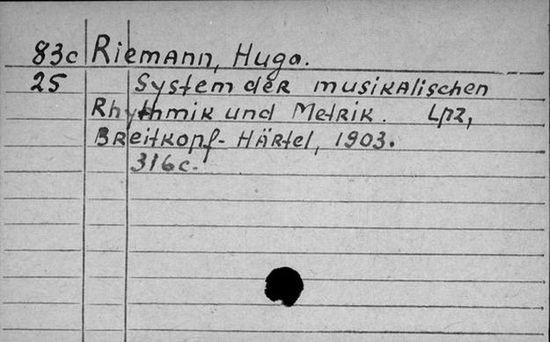 83c Riemann, Hugo.
25 System der musikalischen
Rhythmik und Metrik. Lpz,
Breitkopf-Härtel, 1903.
316c.